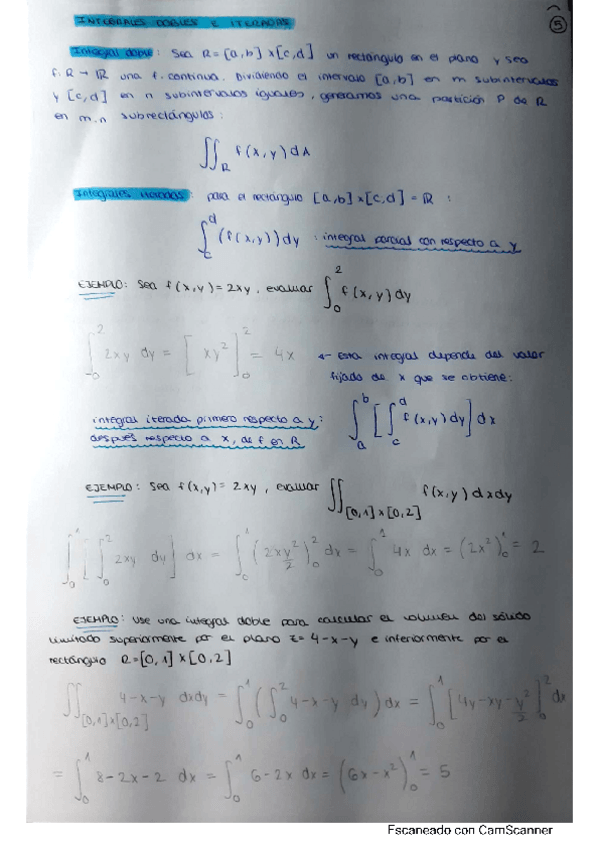 INTEGRALES DOBLES E ITERADAS
5
Integral doble: Sea R=[a,b]x[c,d] un rectángulo en el plano y sea
f: R → IR una f. continua. Dividiendo el intervalo [a,b] en m subintervalos
y [c,d] en n subintervalos iguales, generamos una partición P de R
en m.n subrectángulos:
∬_R f(x,y)dA
Integrales iteradas: para el rectángulo [a,b]x[c,d] = IR :
∫_c^d (f(x,y))dy : integral parcial con respecto a y
EJEMPLO: Sea f(x,y)=2xy, evaluar ∫_0^2 f(x,y)dy
∫_0^2 2xy dy = [xy²]_0^2 = 4x ← Esta integral depende del valor
fijado de x que se obtiene:
integral iterada primero respecto a y: ∫_a^b [∫_c^d f(x,y)dy] dx
después respecto a x, de f en R
EJEMPLO: Sea f(x,y)=2xy, evaluar ∬_[0,1]x[0,2] f(x,y)dxdy
∫_0^1 [∫_0^2 2xy dy] dx = ∫_0^1 (2xy²/2)_0^2 dx = ∫_0^1 4x dx = (2x²)_0^1 = 2
EJEMPLO: Use una integral doble para calcular el volumen del sólido
limitado superiormente por el plano z=4-x-y e inferiormente por el
rectángulo R=[0,1]x[0,2]
∬_[0,1]x[0,2] 4-x-y dxdy = ∫_0^1 (∫_0^2 4-x-y dy) dx = ∫_0^1 [4y-xy-y²/2]_0^2 dx
= ∫_0^1 8-2x-2 dx = ∫_0^1 6-2x dx = (6x-x²)_0^1 = 5
Escaneado con CamScanner